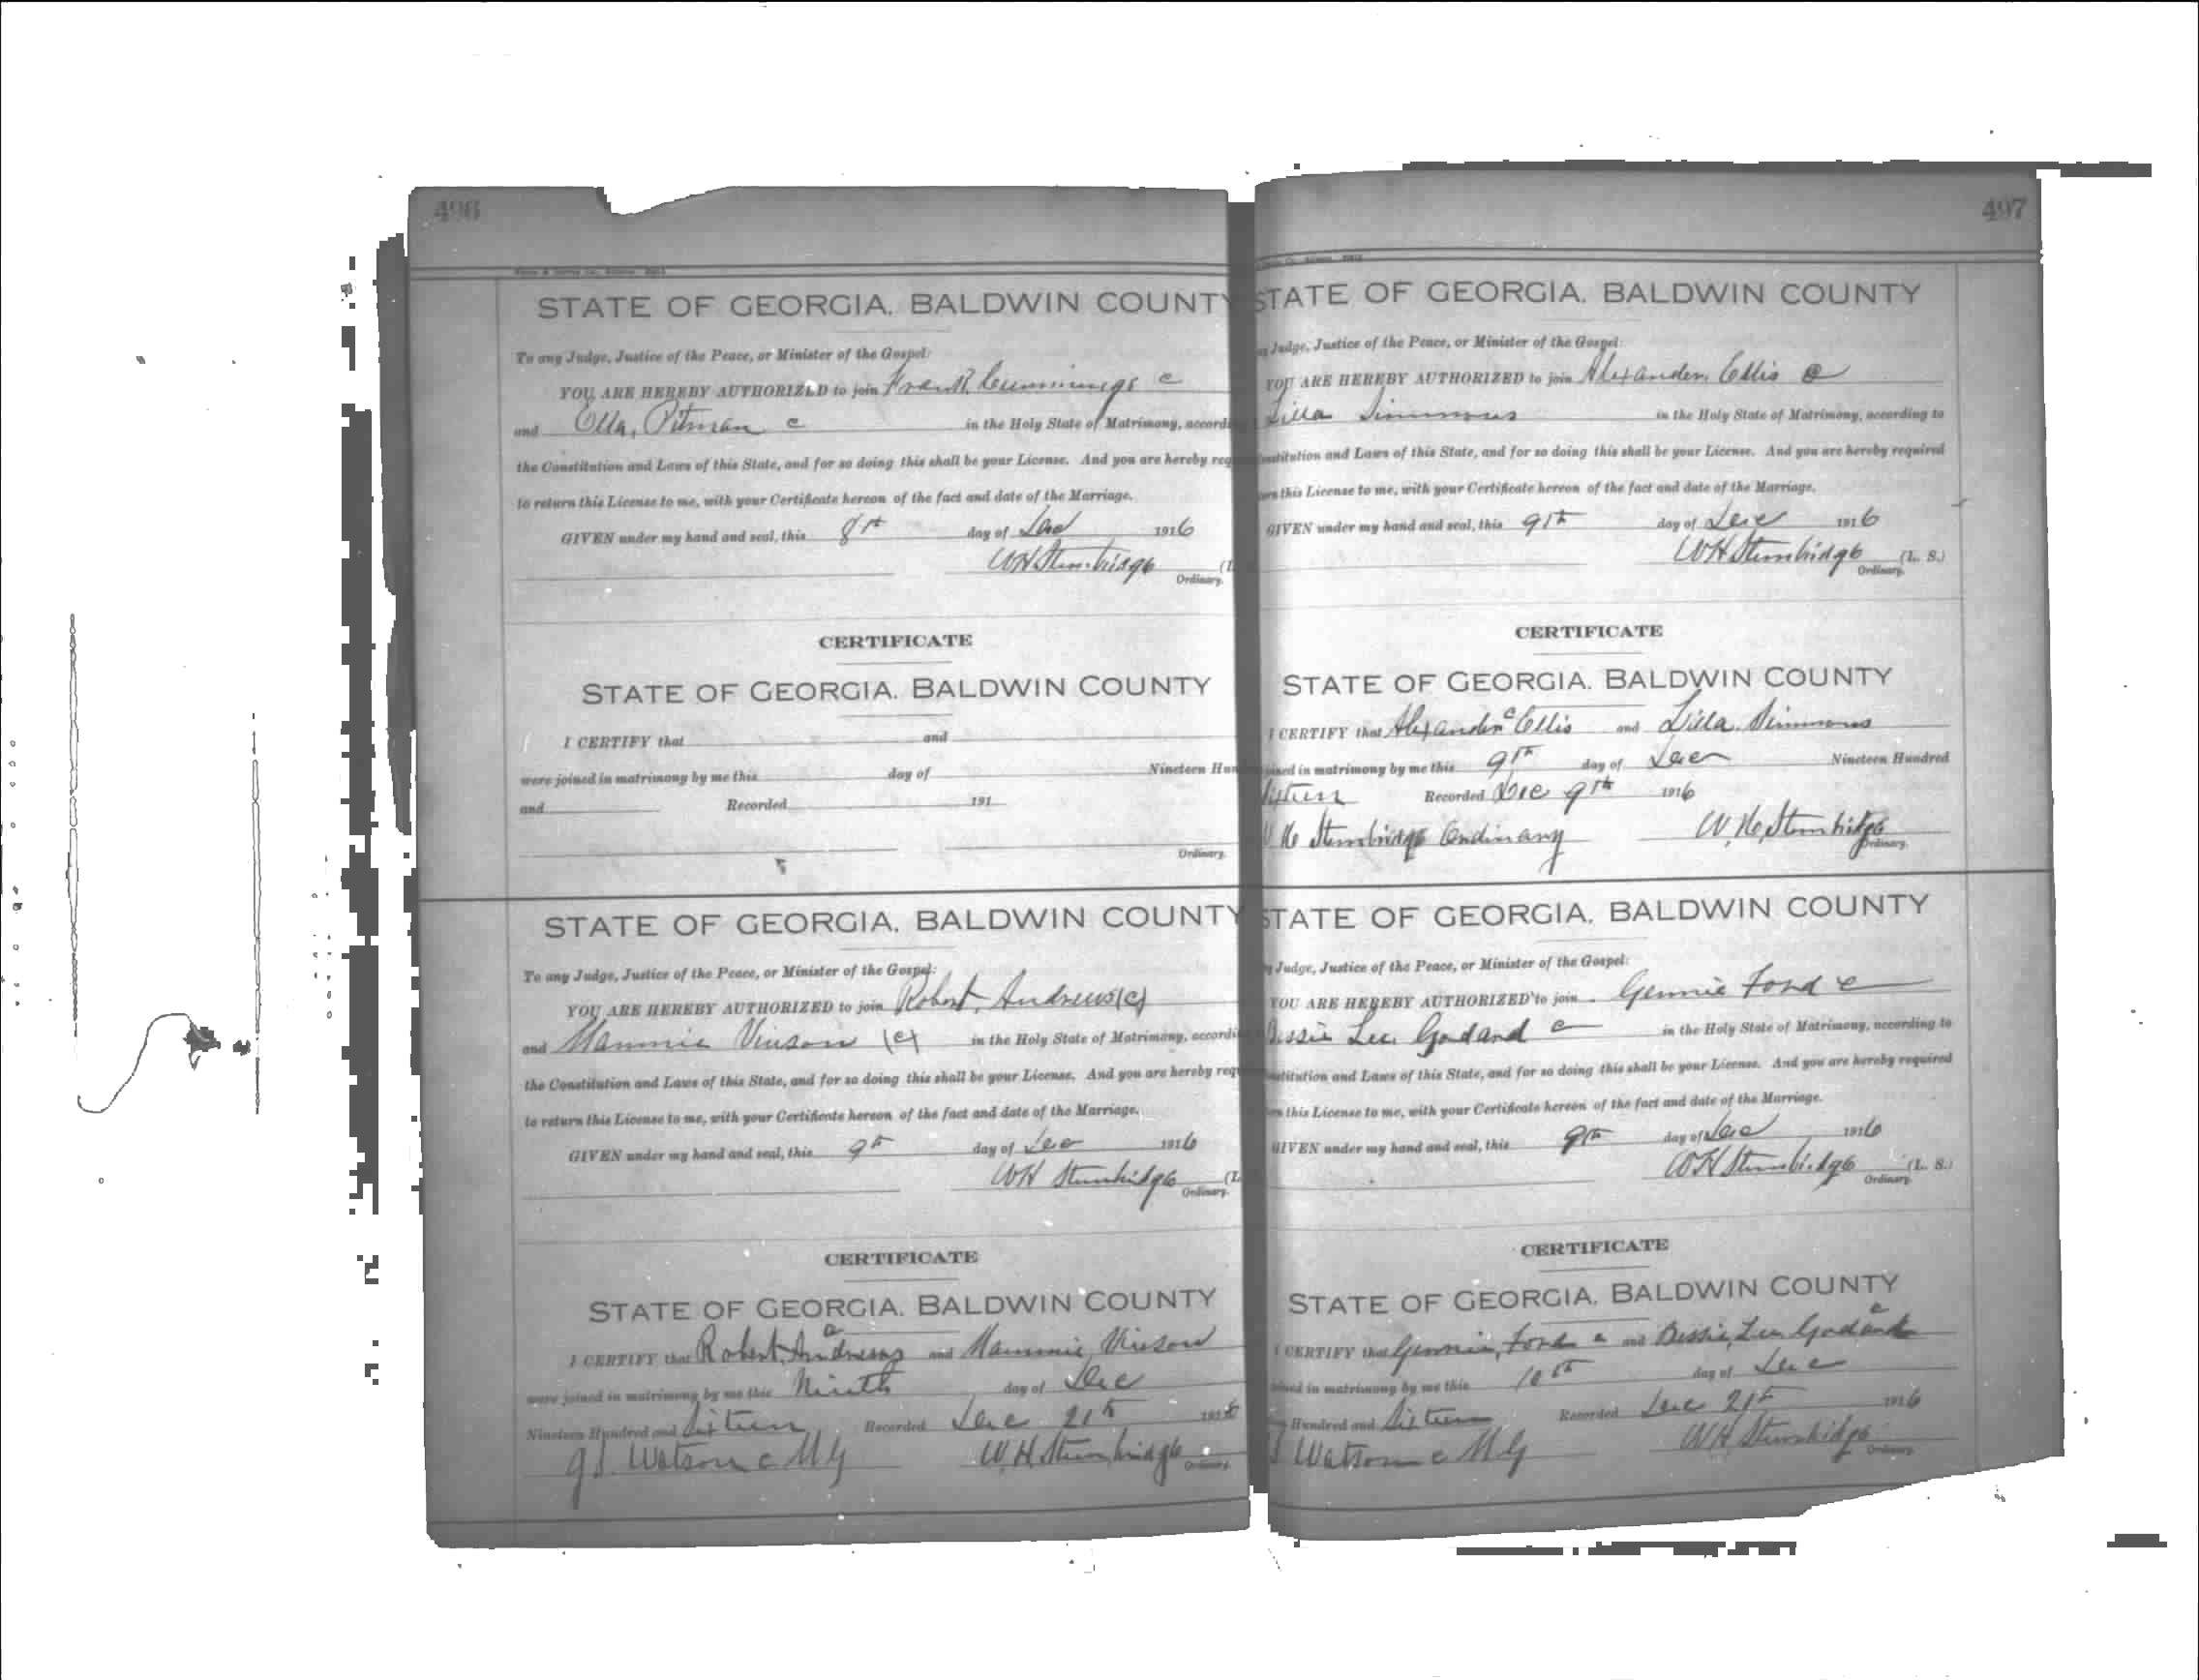 496
STATE OF GEORGIA. BALDWIN COUNTY
To any Judge, Justice of the Peace, or Minister of the Gospel:
YOU ARE HEREBY AUTHORIZED to join Frank Cummings c
and Ella Pitman c in the Holy State of Matrimony, accordi
the Constitution and Laws of this State, and for so doing this shall be your License. And you are hereby req
to return this License to me, with your Certificate hereon of the fact and date of the Marriage.
GIVEN under my hand and seal, this 8th day of Dec 1916
WH Stembridge (L
Ordinary.
CERTIFICATE
STATE OF GEORGIA. BALDWIN COUNTY
I CERTIFY that and
were joined in matrimony by me this day of Nineteen Hun
and Recorded 191
Ordinary.
STATE OF GEORGIA. BALDWIN COUNTY
To any Judge, Justice of the Peace, or Minister of the Gospel:
YOU ARE HEREBY AUTHORIZED to join Robert Andrews (c)
and Mammie Vinson (c) in the Holy State of Matrimony, accordi
the Constitution and Laws of this State, and for so doing this shall be your License. And you are hereby req
to return this License to me, with your Certificate hereon of the fact and date of the Marriage.
GIVEN under my hand and seal, this 9th day of Dec 1916
WH Stembridge (L
Ordinary.
CERTIFICATE
STATE OF GEORGIA. BALDWIN COUNTY
I CERTIFY that Robert Andrews c and Mammie Vinson
were joined in matrimony by me this Ninth day of Dec
Nineteen Hundred and Sixteen Recorded Dec 21st 1916
Watson c MG W H Stembridge
Ordinary.
497
STATE OF GEORGIA. BALDWIN COUNTY
Judge, Justice of the Peace, or Minister of the Gospel:
YOU ARE HEREBY AUTHORIZED to join Alexander Ellis c
Lilla Simmons in the Holy State of Matrimony, according to
nstitution and Laws of this State, and for so doing this shall be your License. And you are hereby required
urn this License to me, with your Certificate hereon of the fact and date of the Marriage.
GIVEN under my hand and seal, this 9th day of Dec 1916
WH Stembridge (L. S.)
Ordinary.
CERTIFICATE
STATE OF GEORGIA. BALDWIN COUNTY
I CERTIFY that Alexander c Ellis and Lilla Simmons
joined in matrimony by me this 9th day of Dec Nineteen Hundred
Sixteen Recorded Dec 9th 1916
W H Stembridge Ordinary W. H. Stembridge
Ordinary.
STATE OF GEORGIA. BALDWIN COUNTY
Judge, Justice of the Peace, or Minister of the Gospel:
YOU ARE HEREBY AUTHORIZED to join Gennie Ford c
Bessie Lee Godard c in the Holy State of Matrimony, according to
nstitution and Laws of this State, and for so doing this shall be your License. And you are hereby required
urn this License to me, with your Certificate hereon of the fact and date of the Marriage.
GIVEN under my hand and seal, this 9th day of Dec 1916
WH Stembridge (L. S.)
Ordinary.
CERTIFICATE
STATE OF GEORGIA. BALDWIN COUNTY
I CERTIFY that Gennie Ford c and Bessie Lee Godard c
joined in matrimony by me this 10th day of Dec
Hundred and Sixteen Recorded Dec 21st 1916
Watson c MG WH Stembridge
Ordinary.